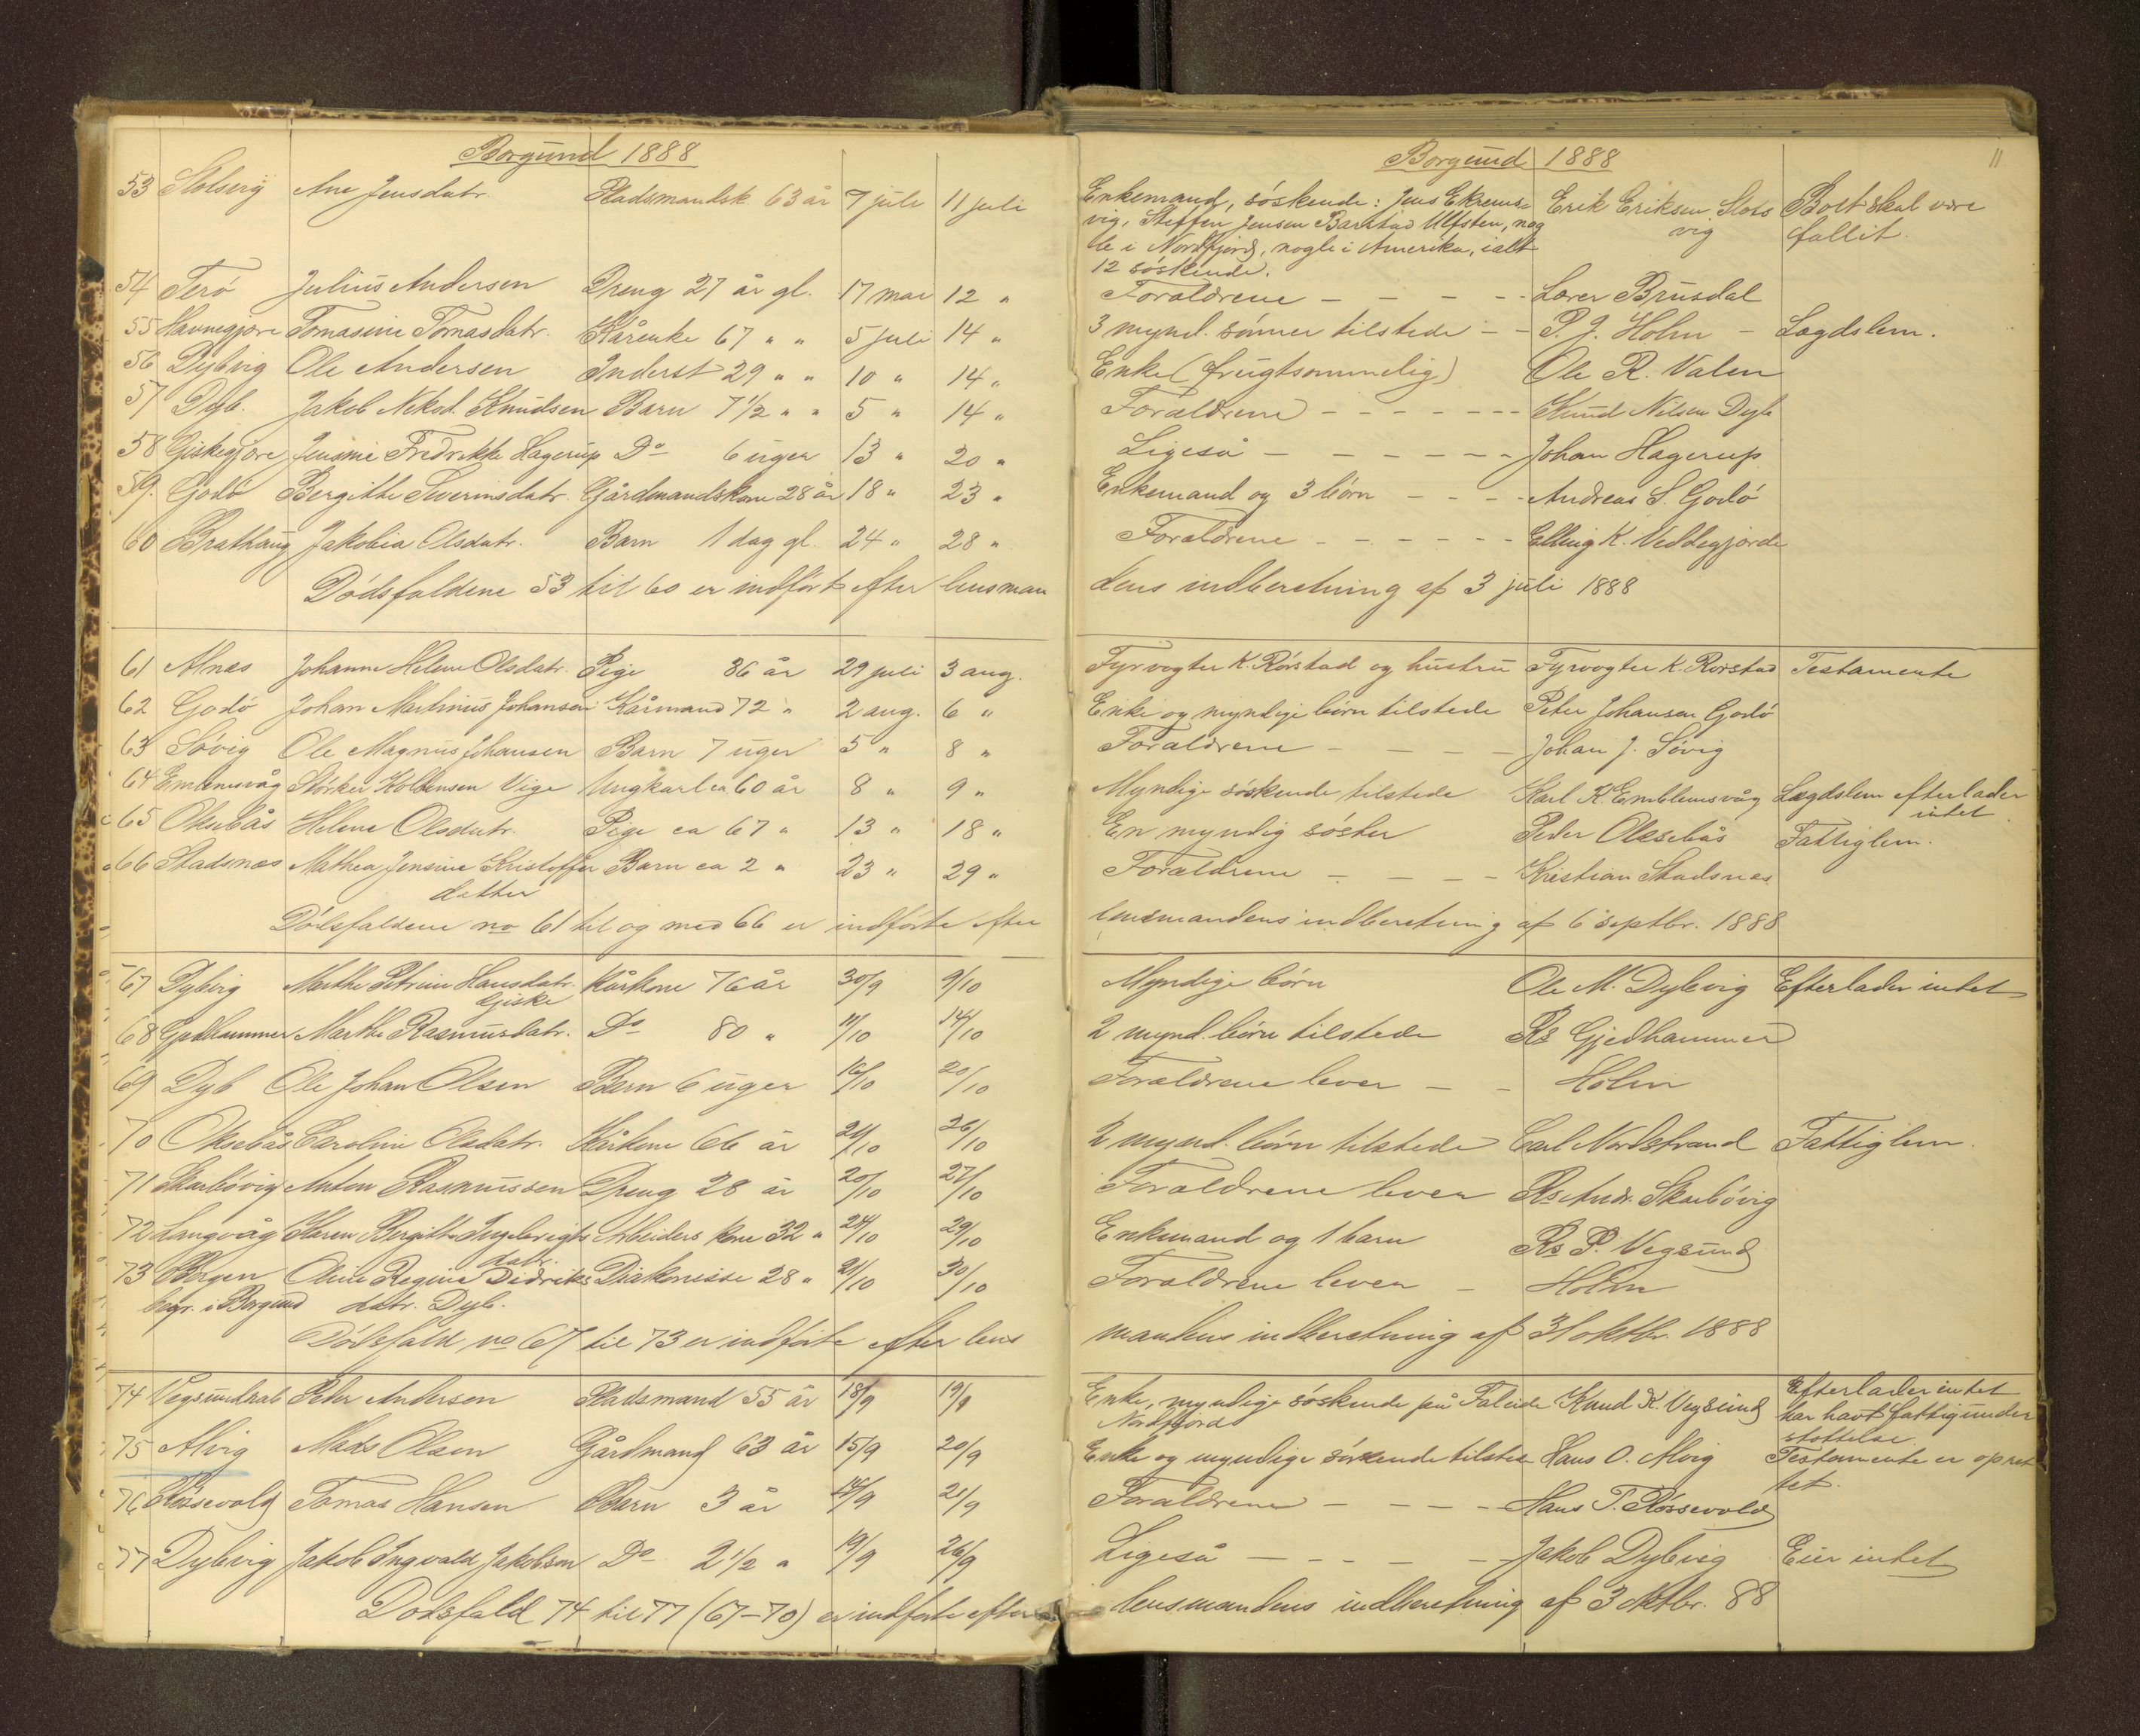 Borgund 1888
53 Ane Jensdatr. Pladsmandsk. 63 år 7 juli 11 juli
54 Terö Julius Andersen Dreng 27 år gl. 17 mai 12 "
55 Havnegjøre Tomasine Tomasdatr. Kårenke 67 " " 5 juli 14 "
56 Dybvig Ole Andersen Inderst 29 " " 10 " 14 "
57 Dyb. Jakob Nikod. Knudsen Barn 7 1/2 " " 5 " 14 "
58 Giskegjøre Jensine Fredrikke Hagerup Do 6 uger 13 " 20 "
59. Godö Bergitte Severinsdatr. Gårdmandskone 28 år 18 " 23 "
60 Brathaug Jakobia Olsdatr. Barn 1 dag gl. 24 " 28 "
Dödsfaldene 53 til 60 er indfört efter lensman
61 Alnæs Johanne Helene Olsdatr. Pige 86 år 29 juli 3 aug.
62 Godö Johan Martinus Johansen Kårmand 72 " 2 aug. 6 "
63 Sövig Ole Magnus Johansen Barn 7 uger 5 " 8 "
64 Emblemsvåg Störker Kolbensen Vige Ungkarl ca 60 år 8 " 9 "
65 Oksebås Helene Olsdatr. Pige ca 67 " 13 " 18 "
66 Stadsnæs Mathea Jensine Kristoffer Barn ca 2 " 23 " 29 "
datter
Dödsfaldene no 61 til og med 66 er indförte efter
67 Dybvig Marthe Petrine Hansdatr. Kårkone 76 år 30/9 9/10
Giske
68 Gjedhammer Marthe Rasmusdatr. Do 80 " 11/10 14/10
69 Dyb Ole Johan Olsen Barn 6 uger 16/10 20/10
70 Oksebås Caroline Olsdatr. Kårkone 66 år 21/10 26/10
71 Skarbövig Anton Rasmussen Dreng 28 år 20/10 27/10
72 Langvåg Karen Bergitte Ingebrigts Arbeiders kone 32 " 24/10 29/10
datr.
73 Bergen Oline Regine Didriks Diakonisse 28 " 21/10 30/10
begr. i Borgund datr. Dyb.
Dödsfald no 67 til 73 er indförte efter lens
74 Peter Andersen Pladsmand 55 år 18/9 19/9
75 Alvig Mads Olsen Gårdmand 63 år 15/9 20/9
76 Rössevold Tomas Hansen Barn 3 år 14/9 21/9
77 Dybvig Jakob Ingvald Jakobsen Do 2 1/2 " 19/9 26/9
Dödsfald 74 til 77 (67-70) er indförte efter
Borgund 1888 11
Enkemand, söskende: Jens Ekrems= Erik Eriksen Slots Boet skal være
vig, Steffen Jensen Barstad Ulfsten, nog vig fallit.
le i Nordfjord, nogle i Amerika, ialt
12 söskende.
Forældrene - - - - Lærer Brusdal
3 mynd. sönner tilstede - - P. J. Holm - Lægdslem.
Enke (frugtsommelig) Ole R. Valen
Forældrene - - - - - - Knud Nilsen Dyb
Ligeså - - - - - - Johan Hagerup
Enkemand og 3 börn - - - - Andreas S. Godö
Forældrene - - - - - - Elling K. Veddegjerde
dens indberetning af 3 juli 1888
Fyrvogter K. Rörstad og hustru Fyrvogter K. Rörstad Testamente
Enke og myndige börn tilstede Peter Johansen Godö
Forældrene - - - - Johan J. Sövig
Myndige söskende tilstede Karl K. Emblemsvåg Lægdslem efterlader
intet
En myndig söster Peder Oksebås Fattiglem.
Forældrene - - - - Kristian Stadsnæs
lensmandens indberetning af 6 septbr. 1888
Myndige börn Ole M. Dybvig Efterlader intet
2 mynd. börn tilstede Rs Gjedhammer
Forældrene lever - - Holm
2 mynd. börn tilstede Carl Nordstrand Fattiglem.
Forældrene lever Rs Andr. Skarbövig
Enkemand og 1 barn Rs P. Vegsund
Forældrene lever - Holm
mandens indberetning af 31 oktbr. 1888
Enke, myndige söskende på Faleide Knud K. Vegsund Efterlader intet
Nordfjord har havt fattigunder
støttelse.
Enke og myndige söskende tilstede Hans O. Alvig Testamente er opret
tet.
Forældrene - - - - Hans T. Rössevold
Ligeså - - - - - Jakob Dybvig Eier intet
lensmandens indberetning af 3 oktbr. 88